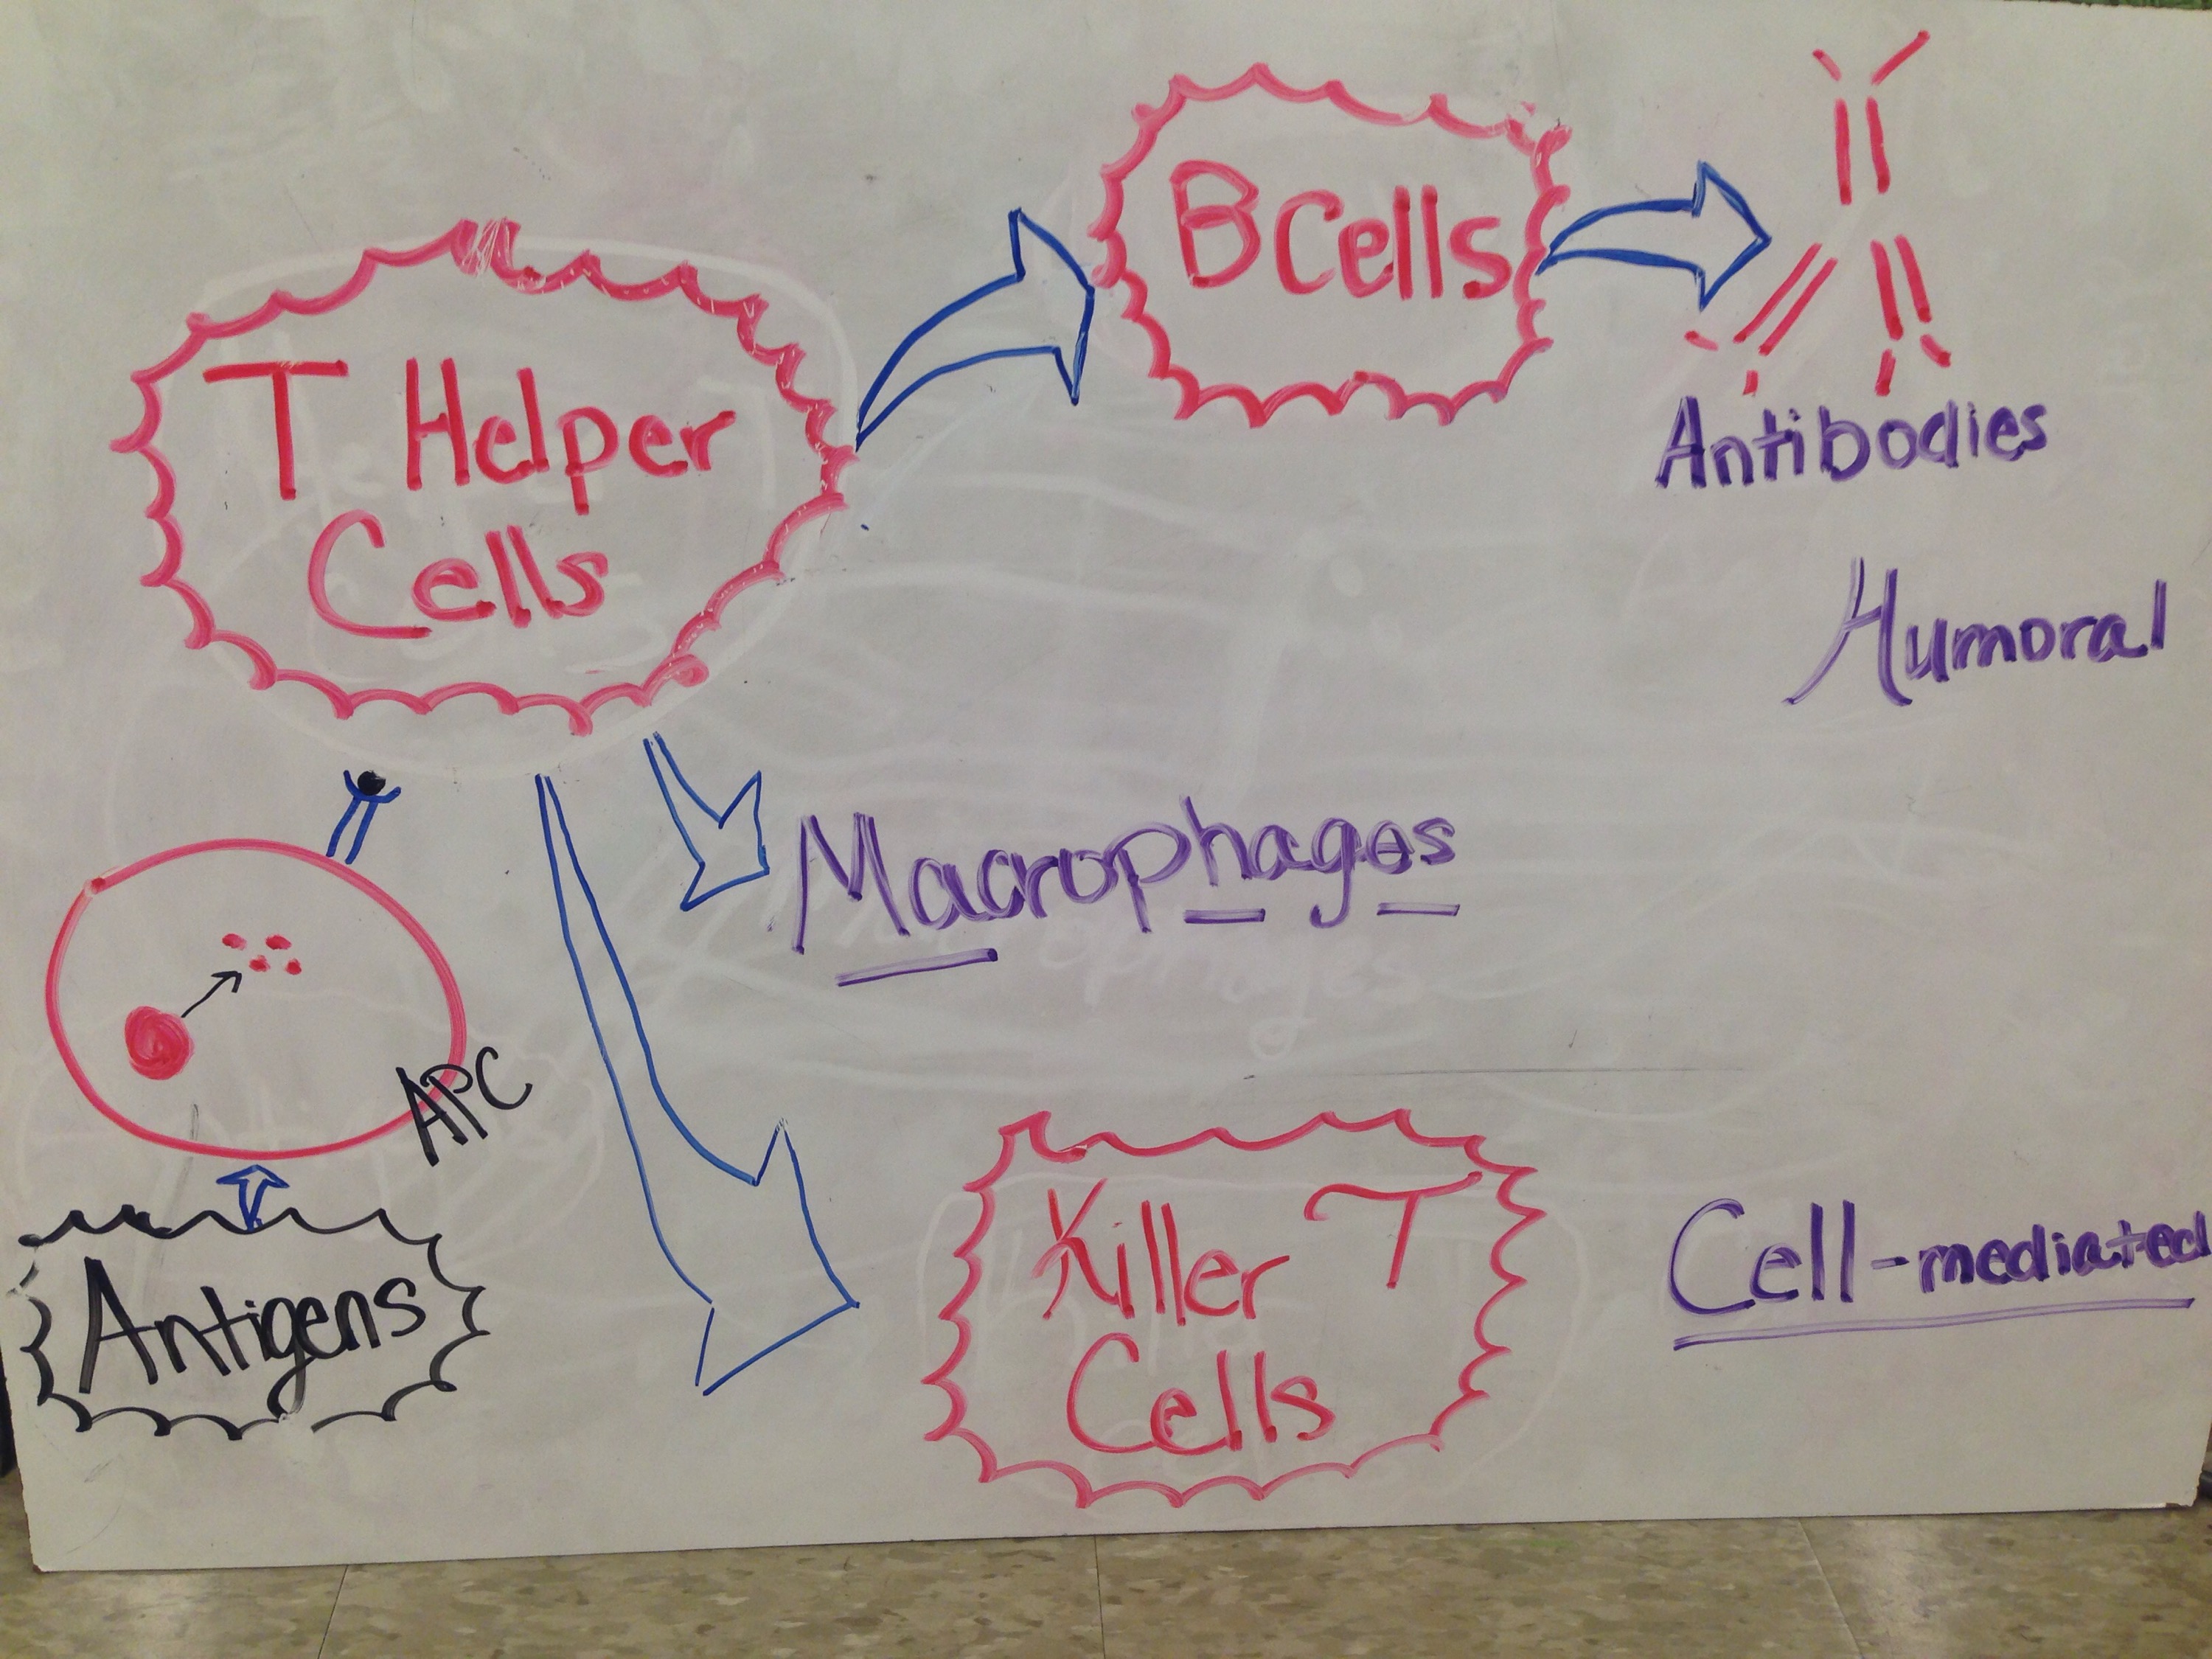 T Helper
Cells
B Cells
Antibodies
Humoral
Macrophages
APC
Antigens
Killer T
Cells
Cell-mediated